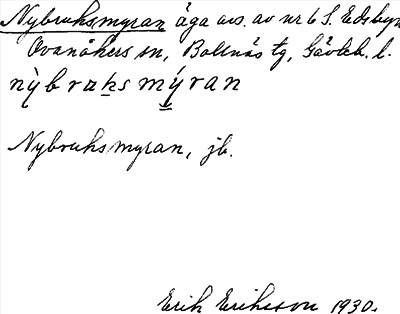 Nybruksmyran äga avs. av nr 6 S. Edsbyn
Ovanåkers sn, Bollnäs tg, Gävleb. l.
nỳbrʉks mýran
Nybruksmyran, jb.
Erik Eriksson 1930.